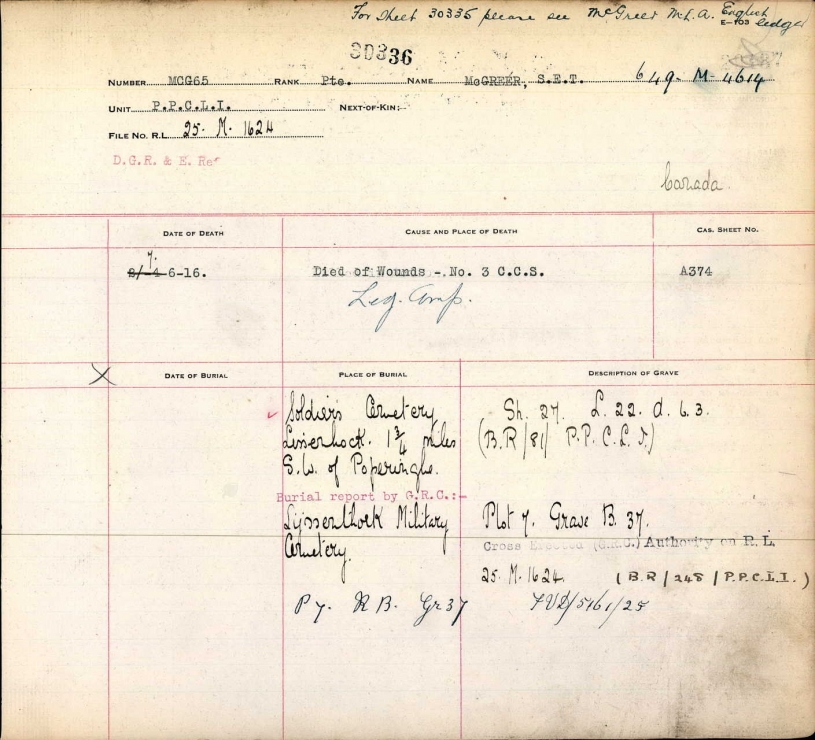 For Sheet 30335 please see McGreer M.L.A. English ledger
E-103
30336
NUMBER MCG65 RANK Pte. NAME McGREER, S.E.T. 649-M-4614
UNIT P.P.C.L.I. NEXT-OF-KIN:-
FILE NO. R.L. 25. M. 1624
D.G.R. & E. Ref
Canada.
DATE OF DEATH CAUSE AND PLACE OF DEATH CAS. SHEET NO.
7.
2/-4 6-16. Died of Wounds - No. 3 C.C.S. A374
Leg. Amp.
X DATE OF BURIAL PLACE OF BURIAL DESCRIPTION OF GRAVE
Soldiers Cemetery Sh. 27. L. 22. d. 6. 3.
Lissenhock. 1 3/4 miles (B.R/81/ P.P.C.L.I.)
S.W. of Poperinghe.
Burial report by G.R.C.:-
Lijssenthoek Military Plot 7. Grave B. 37.
Cemetery. Cross Erected (G.R.C.) Authority on R.L.
25. M. 1624. (B.R/248/P.P.C.L.I.)
P 7. R B. Gr 37